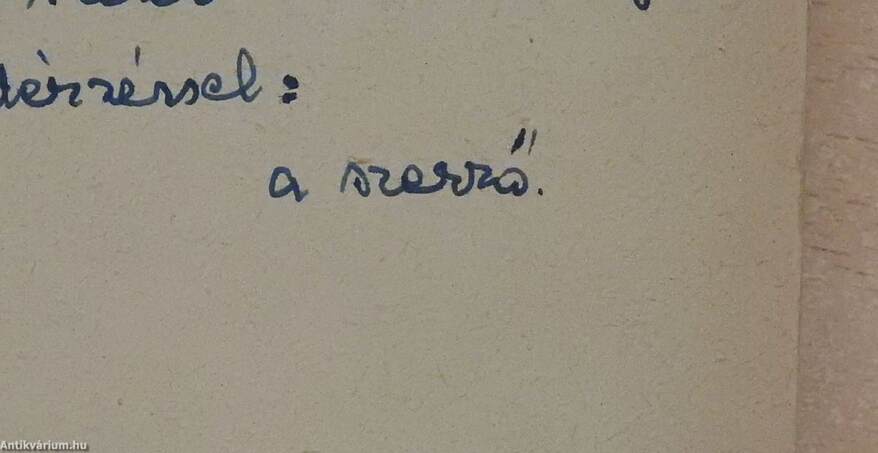 érzéssel:
a szerző.
Antikvárium.hu